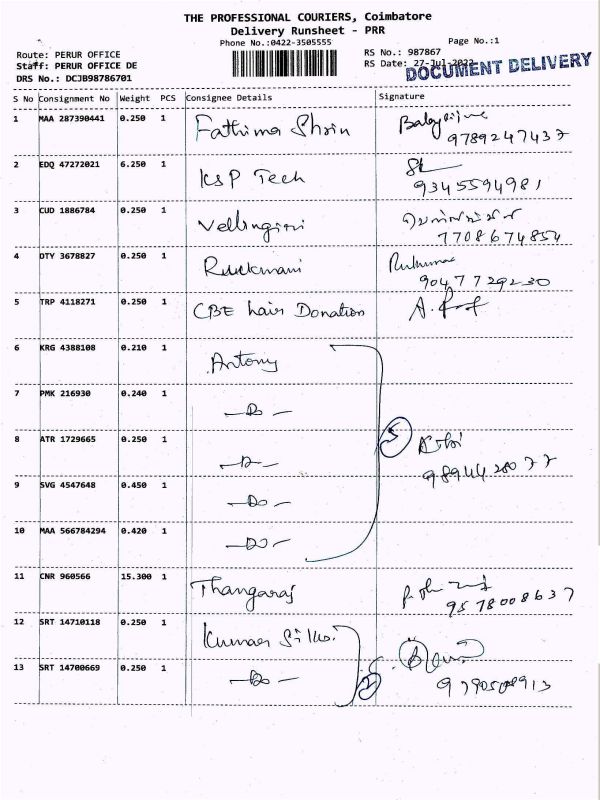 THE PROFESSIONAL COURIERS, Coimbatore
Delivery Runsheet - PRR
Phone No.:0422-3505555
Page No.:1
Route: PERUR OFFICE
RS No.: 987867
Staff: PERUR OFFICE DE
RS Date: 27-Jul-2022
DOCUMENT DELIVERY
DRS No.: DCJB98786701
S No Consignment No Weight PCS Consignee Details Signature
1 MAA 287390441 0.250 1 Fathima Shrin
9789247437
2 EDQ 47272021 6.250 1 KSP Tech
9345594981
3 CUD 1886784 0.250 1 Vellingiri
7708674854
4 OTY 3678827 0.250 1 Rukmani
9047729230
5 TRP 4118271 0.250 1 CBE hair Donation
6 KRG 4388108 0.210 1 Antony
7 PMK 216930 0.240 1 -Do-
5
8 ATR 1729665 0.250 1 -D-
9894428077
9 SVG 4547648 0.450 1 -Do-
10 MAA 566784294 0.420 1 -Do-
11 CNR 960566 15.300 1 Thangaraj
9578008637
12 SRT 14710118 0.250 1 Kumar Silks.
13 SRT 14700669 0.250 1 -Do-
2